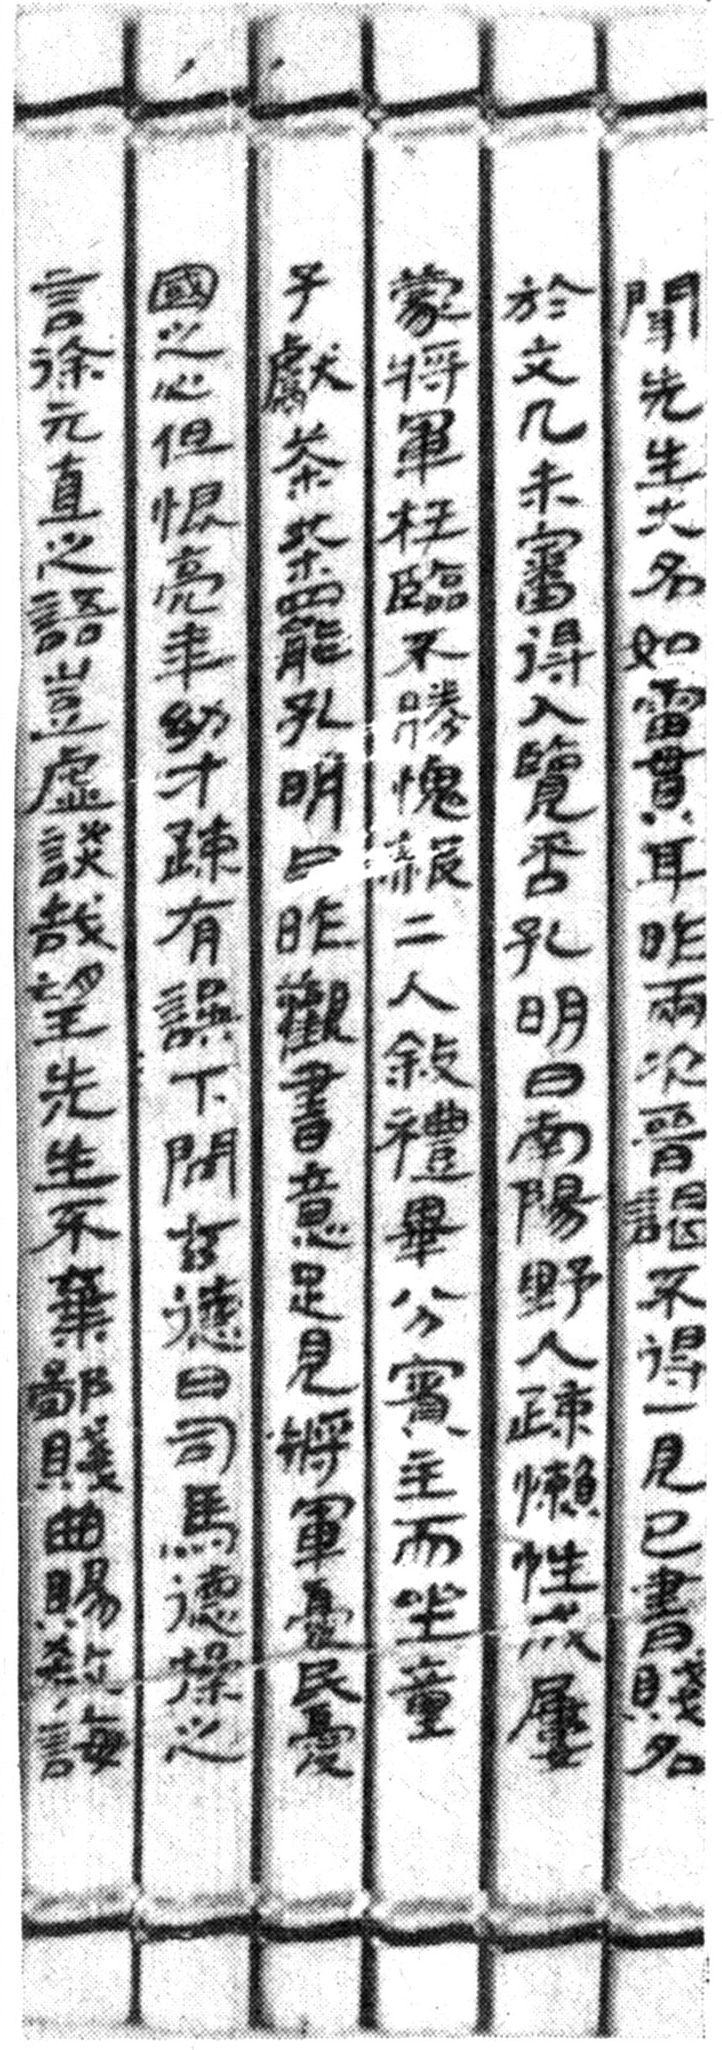 聞先生大名如雷貫耳昨兩次晉謁不得一見已書賤名
於文几未審得入覽否孔明曰南陽野人疎懶性成屢
蒙將軍枉臨不勝愧赧二人敍禮畢分賓主而坐童
子獻茶茶罷孔明曰昨觀書意足見將軍憂民憂
國之心但恨亮年幼才疎有誤下問玄德曰司馬德操之
言徐元直之語豈虛談哉望先生不棄鄙賤曲賜教誨